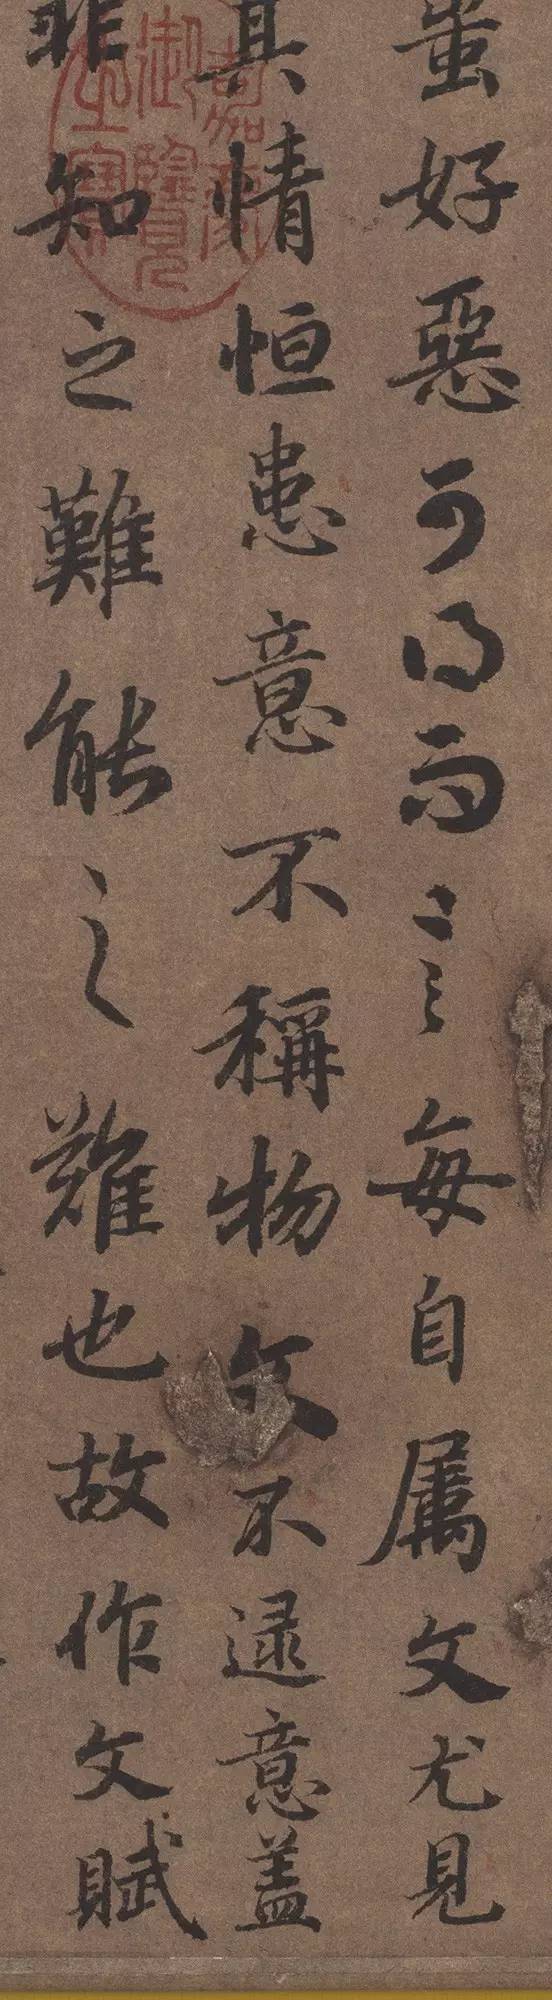 蚩好惡可得而言每自属文尤見
其情恒患意不稱物文不逮意盖
非知之難能之難也故作文賦
嘉慶御覽之寶